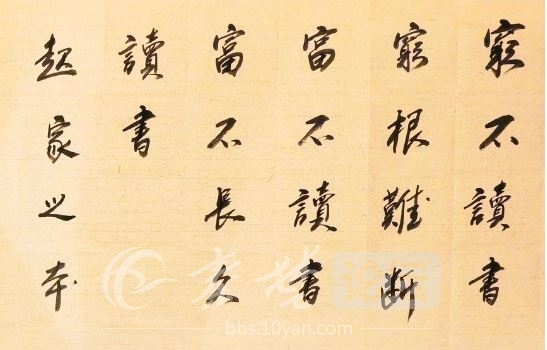 窮不讀書
窮根難斷
富不讀書
富不長久
讀書
起家之本
bbs.10yan.com